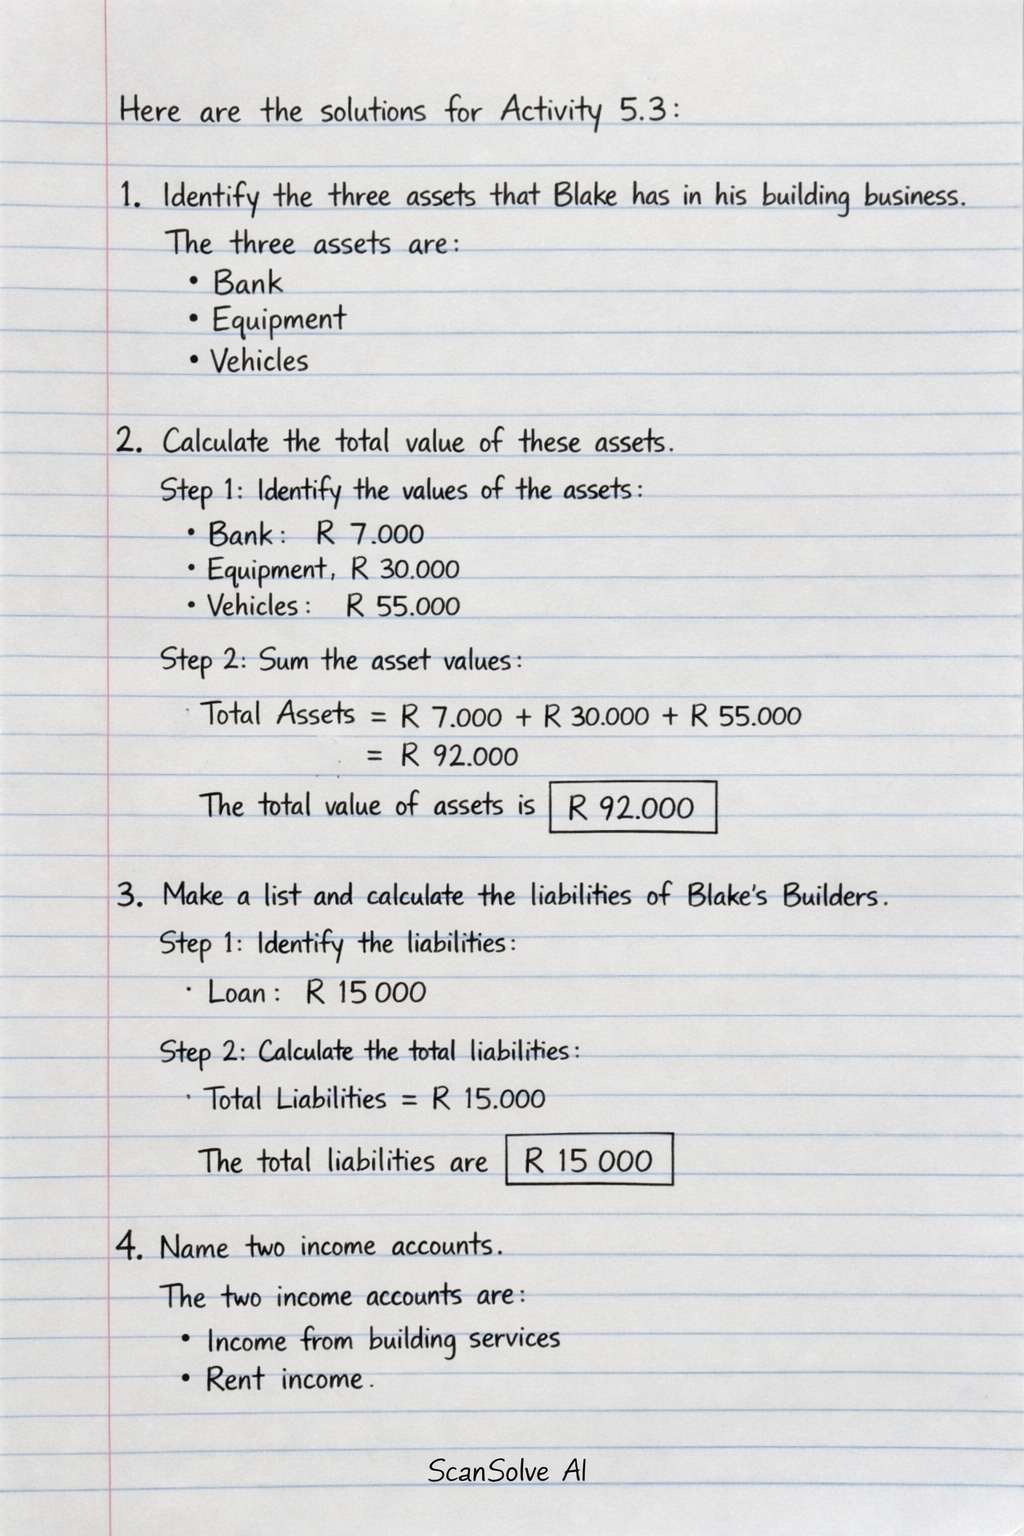 Here are the solutions for Activity 5.3:
1. Identify the three assets that Blake has in his building business.
The three assets are:
• Bank
• Equipment
• Vehicles
2. Calculate the total value of these assets.
Step 1: Identify the values of the assets:
• Bank: R 7.000
• Equipment, R 30.000
• Vehicles: R 55.000
Step 2: Sum the asset values:
Total Assets = R 7.000 + R 30.000 + R 55.000
= R 92.000
The total value of assets is R 92.000
3. Make a list and calculate the liabilities of Blake's Builders.
Step 1: Identify the liabilities:
· Loan: R 15 000
Step 2: Calculate the total liabilities:
· Total Liabilities = R 15.000
The total liabilities are R 15 000
4. Name two income accounts.
The two income accounts are:
• Income from building services
• Rent income.
ScanSolve AI